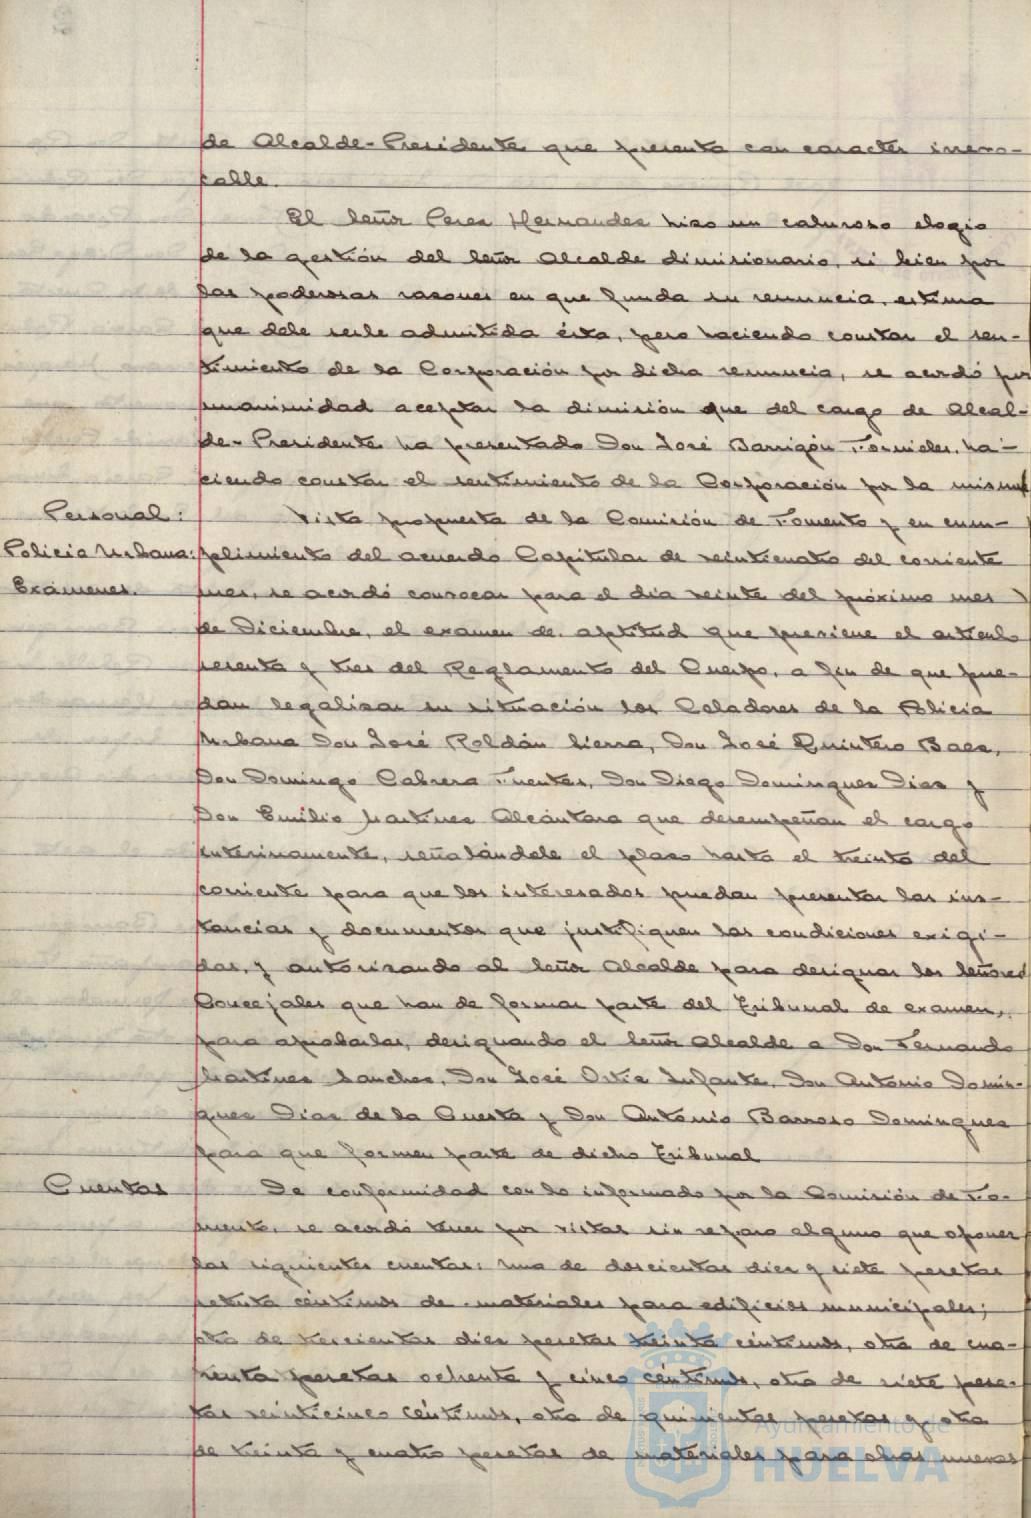 de Alcalde-Presidente que presenta con caracter irrevo-
cable.
El Señor Perez Hernandez hizo un caluroso elogio
de la gestión del Señor Alcalde dimisionario, si bien por
las poderosas razones en que funda su renuncia, estima
que debe serle admitida ésta, pero haciendo constar el sen-
timiento de la Corporación por dicha renuncia, se acordó por
unanimidad aceptar la dimisión que del cargo de Alcal-
de-Presidente ha presentado Don José Barrigón Fornieles, ha-
ciendo constar el sentimiento de la Corporación por la misma
Personal:
Policia Urbana:
Exámenes.
Vista propuesta de la Comisión de Fomento y en cum-
plimiento del acuerdo Capitular de veinticuatro del corriente
mes, se acordó convocar para el dia veinte del próximo mes
de Diciembre, el examen de aptitud que previene el articulo
sesenta y tres del Reglamento del Cuerpo, a fin de que pue-
dan legalizar su situación los Celadores de la Policia
Urbana Don José Roldán Sierra, Don José Quintero Baez,
Don Domingo Cabrera Fuentes, Don Diego Dominguez Diaz y
Don Emilio Martinez Alcántara que desempeñan el cargo
interinamente, señalándole el plazo hasta el treinta del
corriente para que los interesados puedan presentar las ins-
tancias y documentos que justifiquen las condiciones exigi-
das, y autorizando al Señor Alcalde para designar los Señores
Concejales que han de formar parte del Tribunal de examen,
para aprobarlas, designando el Señor Alcalde a Don Fernando
Martinez Sanchez, Don José Ortiz Infante, Don Antonio Domin-
guez Diaz de la Cuesta y Don Antonio Barroso Dominguez
para que formen parte de dicho Tribunal
Cuentas
De conformidad con lo informado por la Comisión de Fo-
mento, se acordó tener por vistas sin reparo alguno que oponer
las siguientes cuentas: una de doscientas diez y siete pesetas
setenta céntimos de materiales para edificios municipales;
otra de trescientas diez pesetas treinta céntimos, otra de cua-
renta pesetas ochenta y cinco céntimos, otra de siete pese-
tas veinticinco céntimos, otra de quinientas pesetas y otra
de treinta y cuatro pesetas de materiales para obras nuevas
Ayuntamiento de
HUELVA